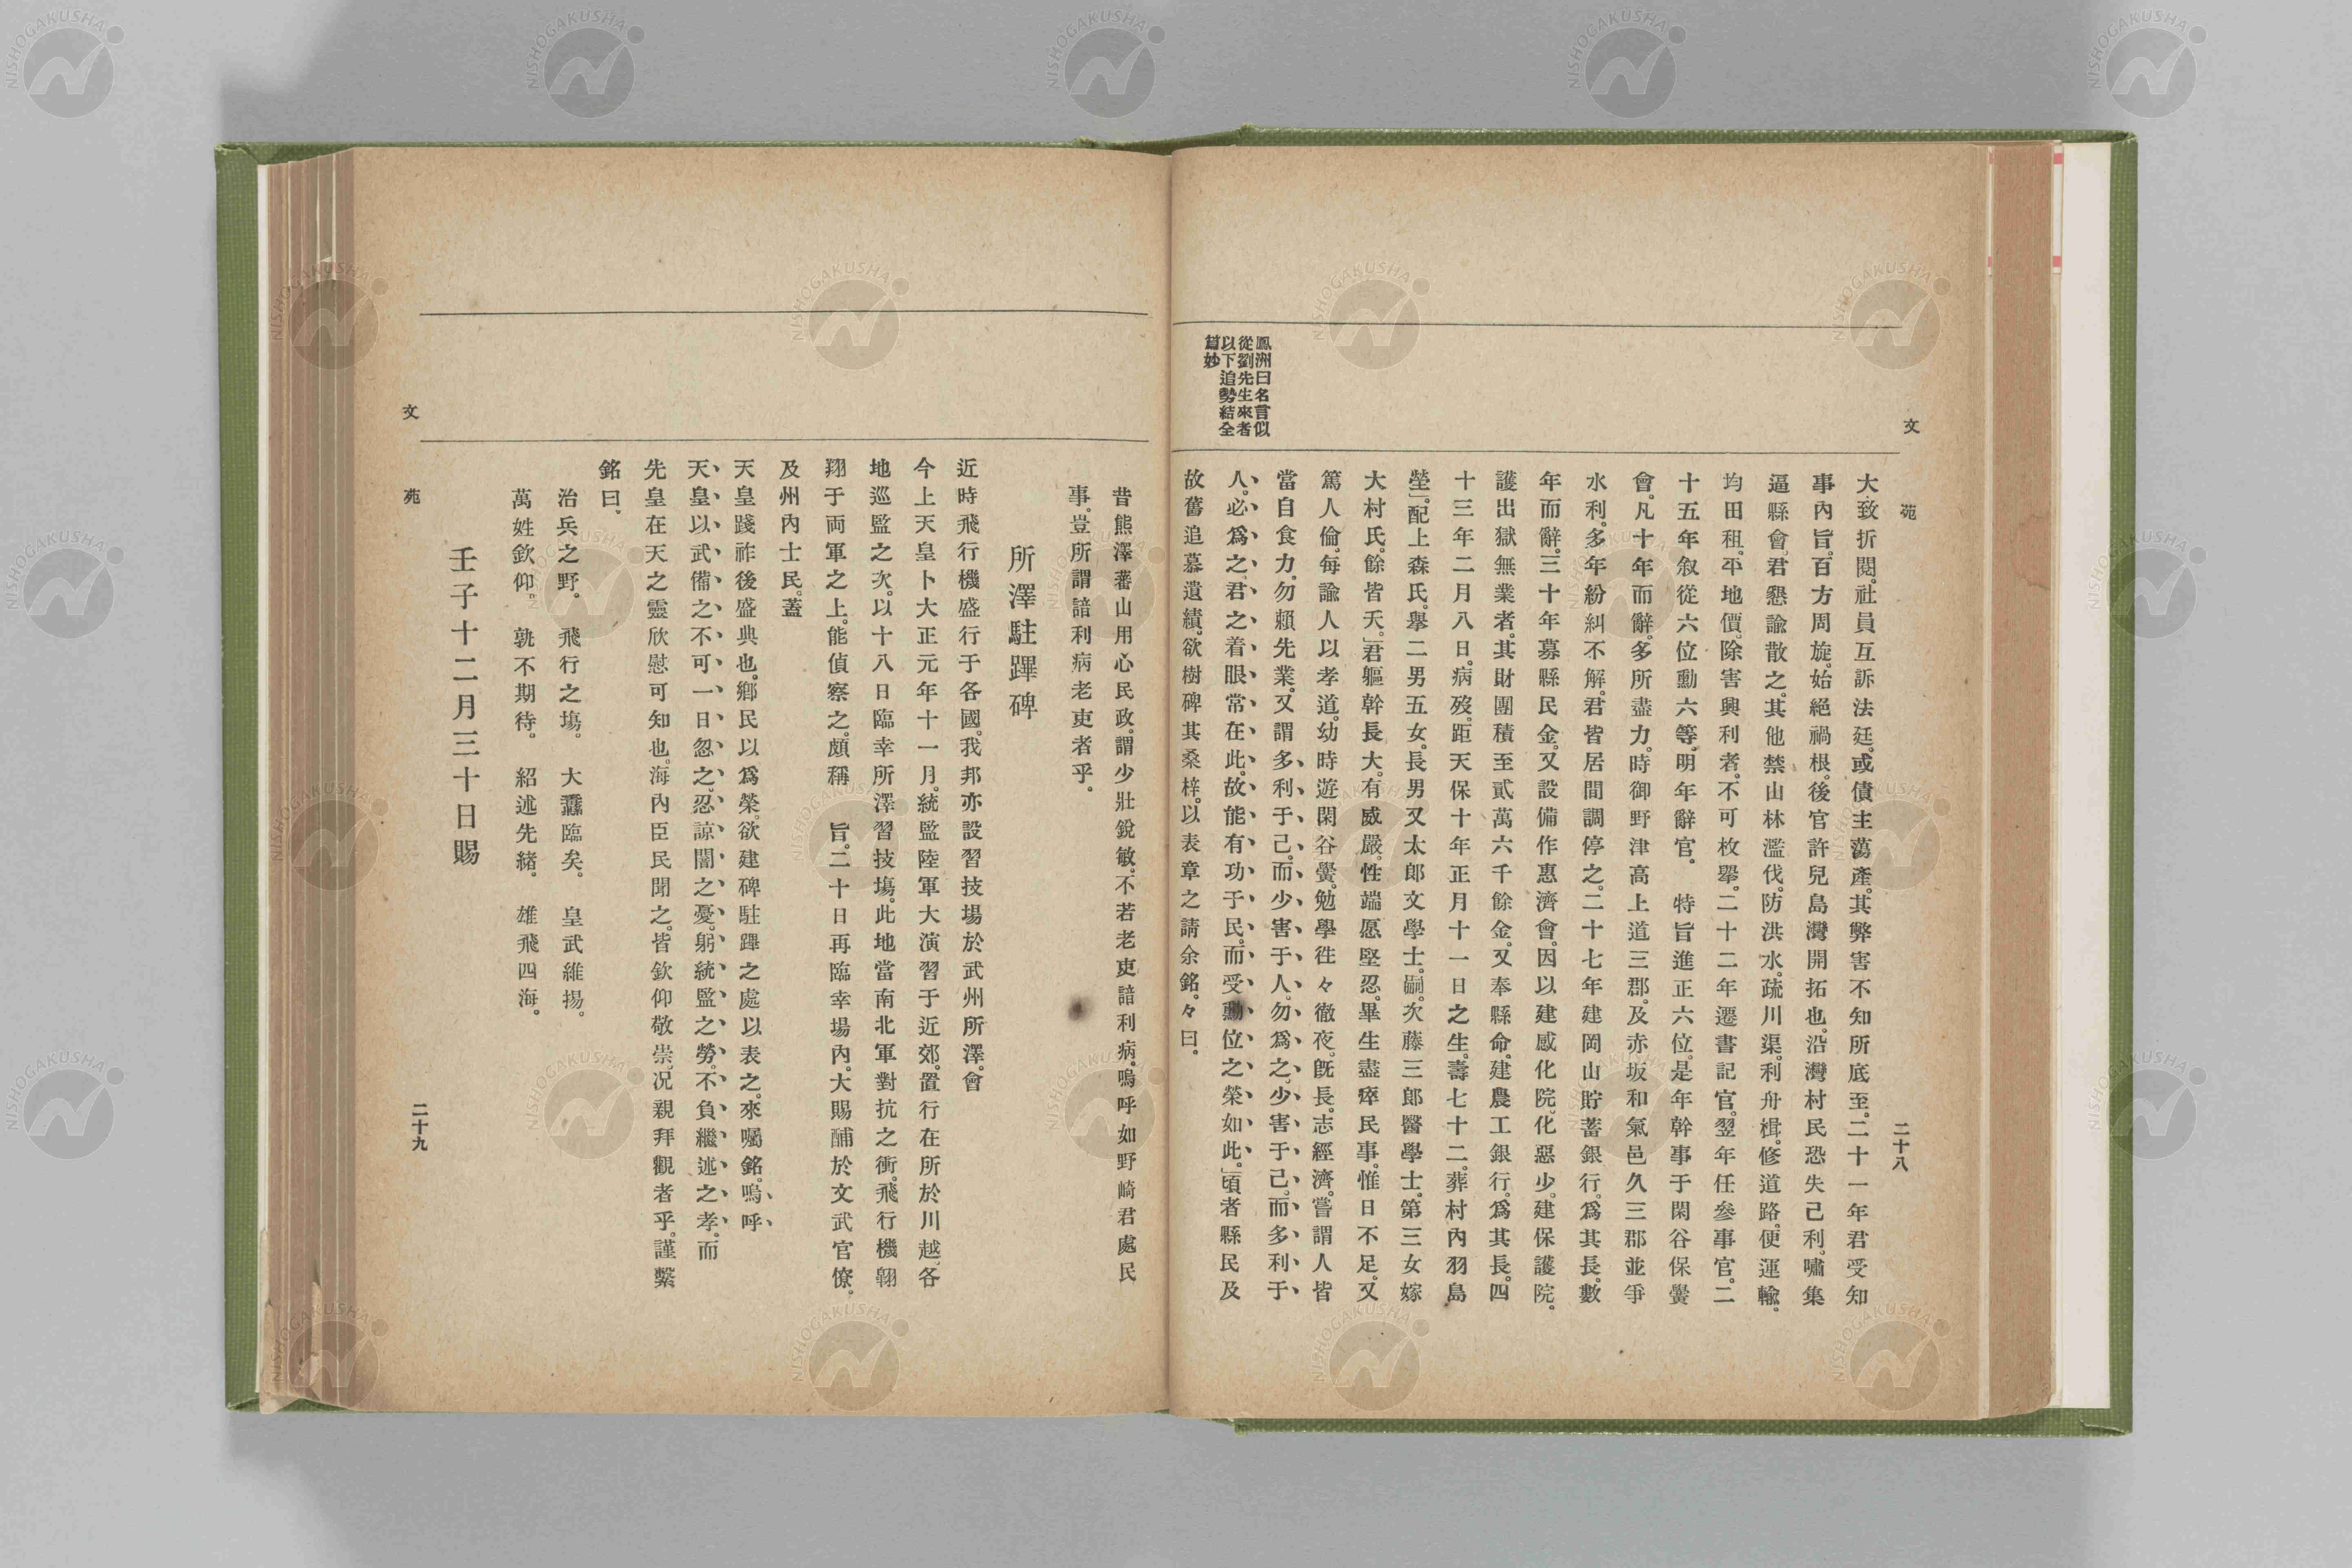 文苑
二十八
鳳洲曰名言似
從劉先生來者
以下追勢結全
篇妙
大致折閱。社員互訴法廷。或債主蕩產。其弊害不知所底至。二十一年君受知
事內旨。百方周旋。始絕禍根。後官許兒島灣開拓也。沿灣村民恐失己利。嘯集
逼縣會。君懇諭散之。其他禁山林濫伐。防洪水。疏川渠。利舟楫。修道路。便運輸。
均田租。平地價。除害興利者。不可枚擧。二十二年遷書記官。翌年任參事官。二
十五年叙從六位勳六等。明年辭官。 特旨進正六位。是年幹事于閑谷保黌
會。凡十年而辭。多所盡力。時御野津高上道三郡。及赤坂和氣邑久三郡並爭
水利。多年紛糾不解。君皆居間調停之。二十七年建岡山貯蓄銀行。爲其長。數
年而辭。三十年募縣民金。又設備作惠濟會。因以建感化院。化惡少。建保護院。
護出獄無業者。其財團積至貳萬六千餘金。又奉縣命。建農工銀行。爲其長。四
十三年二月八日。病歿。距天保十年正月十一日之生。壽七十二。葬村內羽島
塋」。配上森氏。擧二男五女。長男又太郎文學士。嗣。次藤三郎醫學士。第三女嫁
大村氏。餘皆夭。」君軀幹長大。有威嚴。性端愿堅忍。畢生盡瘁民事。惟日不足。又
篤人倫。每諭人以孝道。幼時遊閑谷黌。勉學徃々徹夜。既長。志經濟。嘗謂人皆
當自食力。勿賴先業。又謂多利于己。而少害于人。勿爲之。少害于己。而多利于
人。必爲之。君之着眼常在此。故能有功于民。而受勳位之榮如此。」頃者縣民及
故舊追慕遺績。欲樹碑其桑梓。以表章之請余銘。々曰。
昔熊澤蕃山用心民政。謂少壯銳敏。不若老吏諳利病。嗚呼如野崎君處民
事。豈所謂諳利病老吏者乎。
所澤駐蹕碑
近時飛行機盛行于各國。我邦亦設習技場於武州所澤。會
今上天皇卜大正元年十一月。統監陸軍大演習于近郊。置行在所於川越。各
地巡監之次。以十八日臨幸所澤習技場。此地當南北軍對抗之衝。飛行機翱
翔于両軍之上。能偵察之。頗稱 旨。二十日再臨幸場內。大賜酺於文武官僚。
及州內士民。蓋
天皇踐祚後盛典也。鄕民以爲榮。欲建碑駐蹕之處以表之。來囑銘。嗚呼
天皇以武備之不可一日忽之。忍諒闇之憂。躬統監之勞。不負繼述之孝。而
先皇在天之靈欣慰可知也。海內臣民聞之。皆欽仰敬崇。况親拜觀者乎。謹繫
銘曰。
治兵之野。 飛行之塲。 大纛臨矣。 皇武維揚。
萬姓欽仰。 孰不期待。 紹述先緒。 雄飛四海。
壬子十二月三十日賜
文苑
二十九
NISHOGAKUSHA